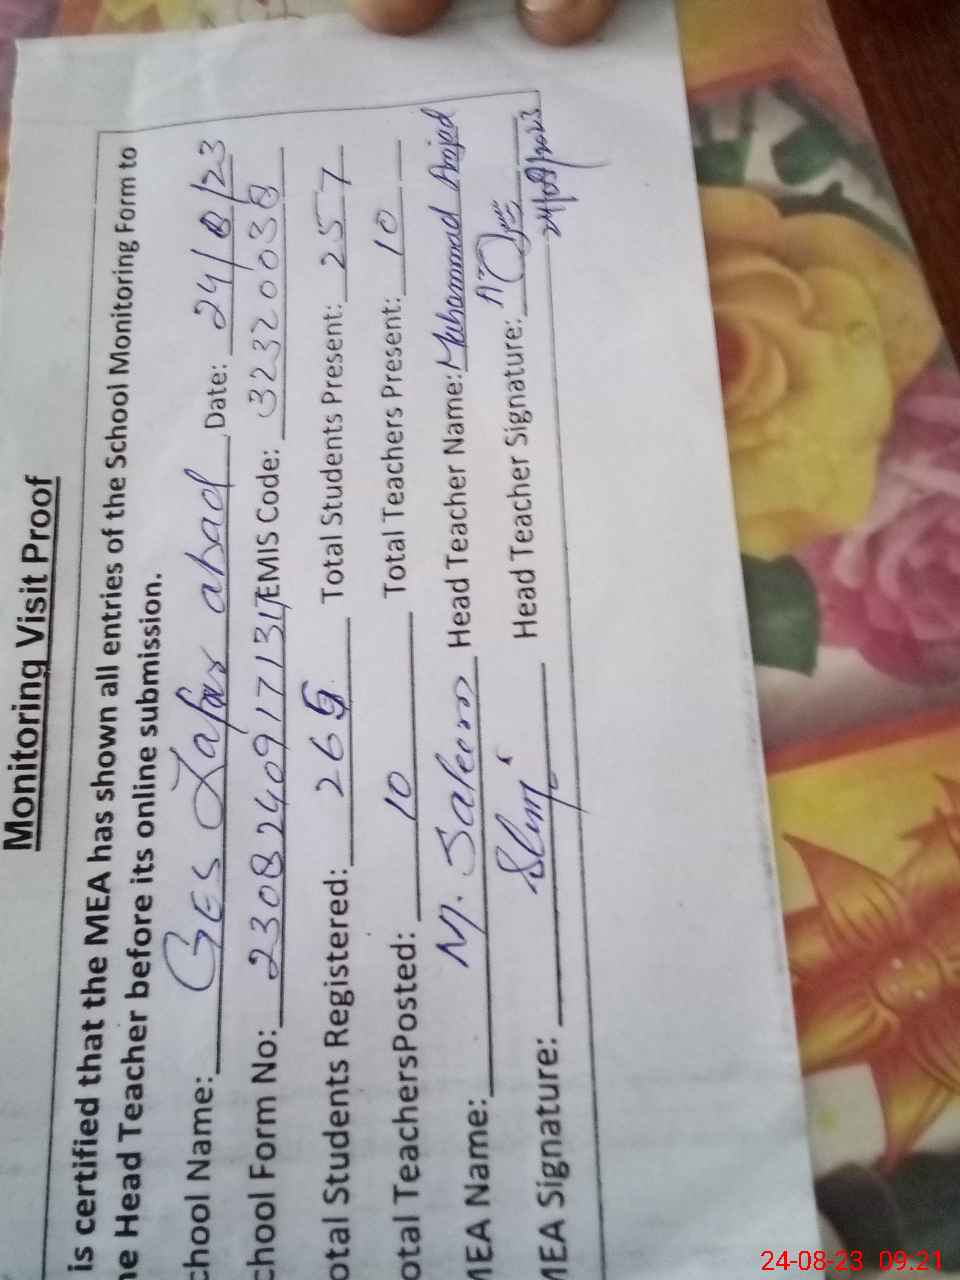 Monitoring Visit Proof
is certified that the MEA has shown all entries of the School Monitoring Form to
he Head Teacher before its online submission.
chool Name: GES Zafar abad Date: 24/8/23
chool Form No: 230824091713 EMIS Code: 32320038
otal Students Registered: 265 Total Students Present: 257
otal TeachersPosted: 10 Total Teachers Present: 10
MEA Name: M. Saleem Head Teacher Name: Muhammad Amjad
MEA Signature: Head Teacher Signature:
24/08/2023
24-08-23 09:21